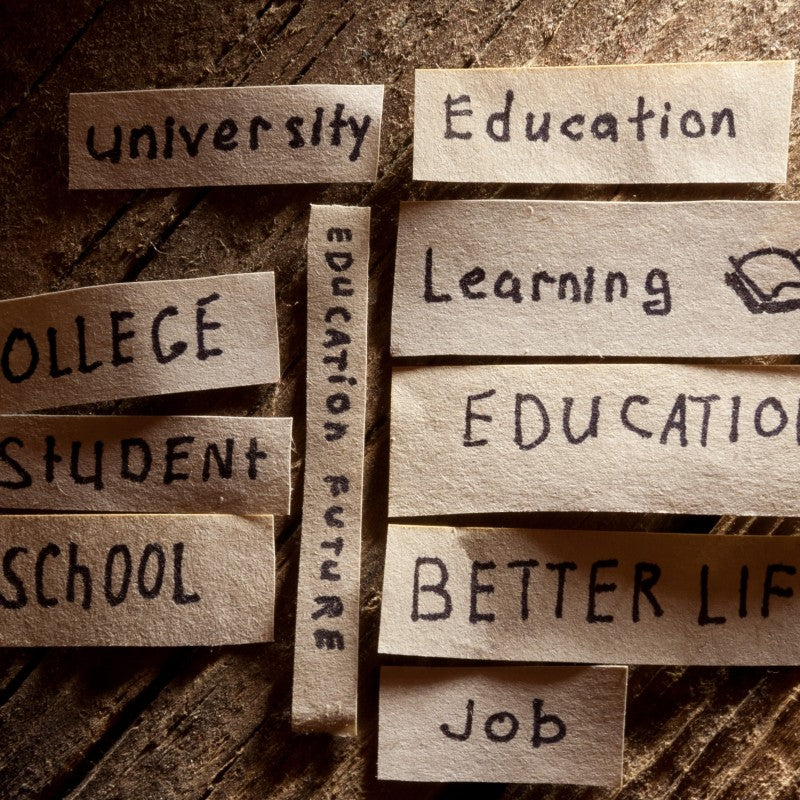 university
Education
Learning
OLLEGE
EDUCATION FUTURE
EDUCATIO
STUDENT
SCHOOL
BETTER LIF
Job